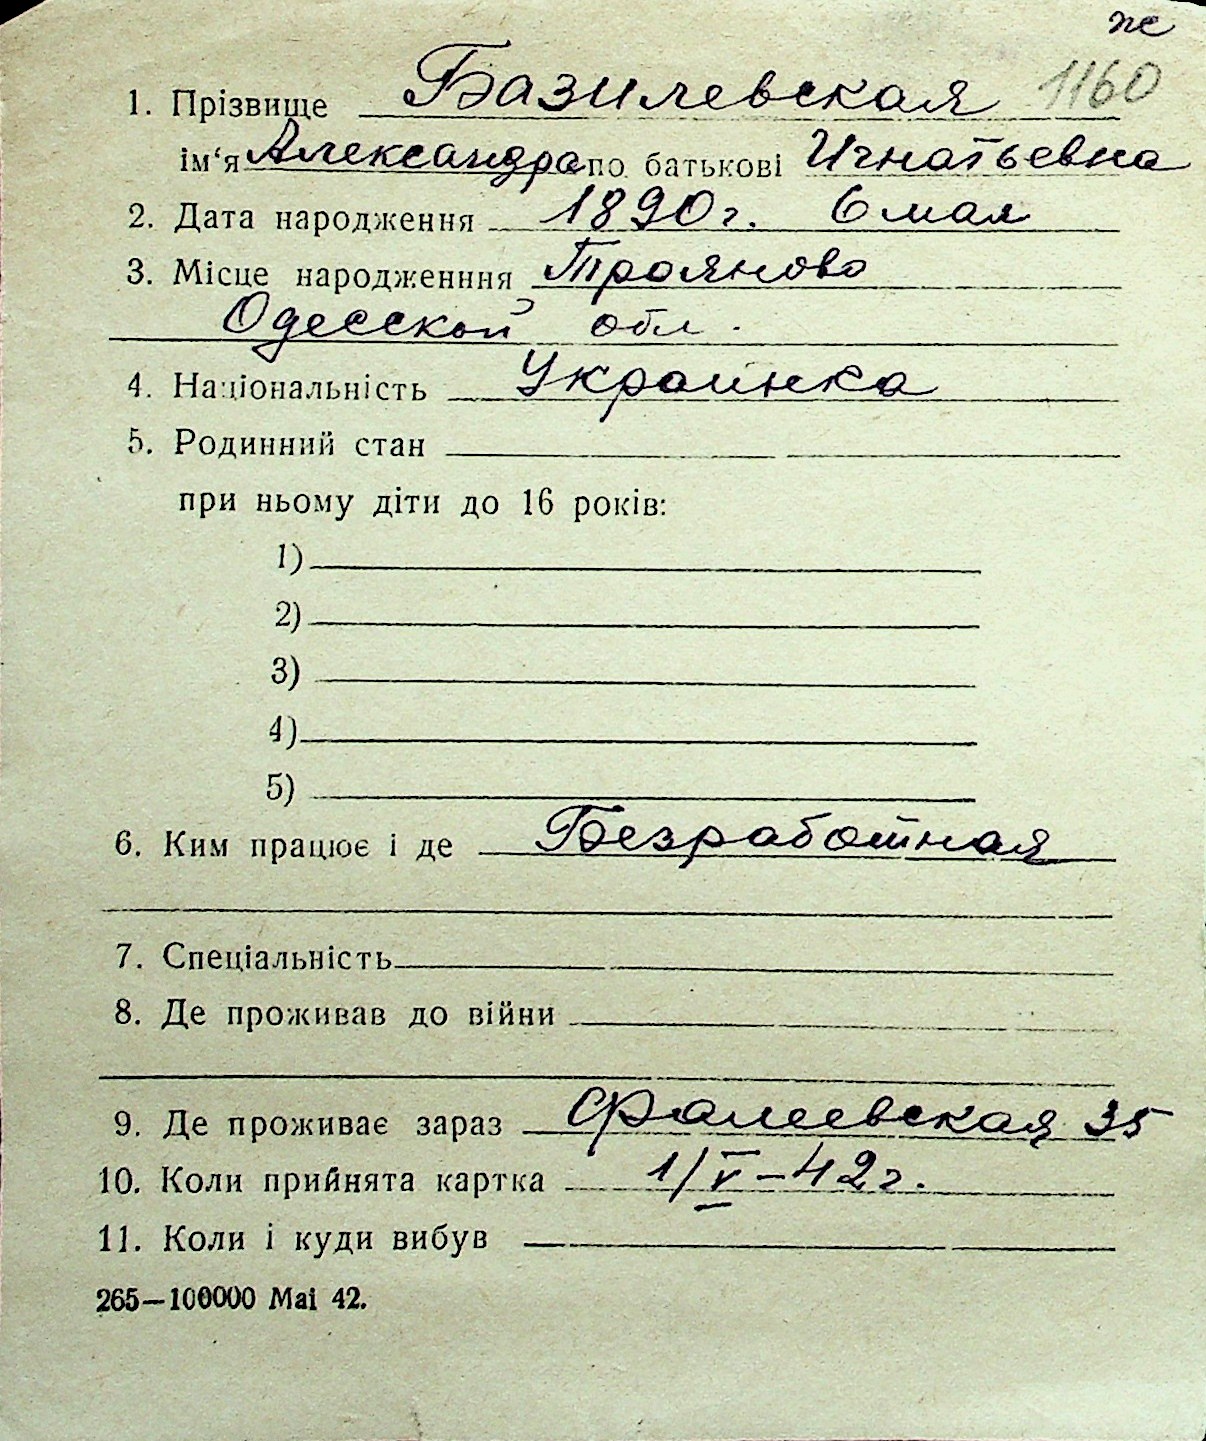 ж
1160
1. Прізвище Базилевская
ім‘я Александра по батькові Игнатьевна
2. Дата народження 1890 г. 6 мая
3. Місце народженння Трояново
Одесской обл.
4. Національність Украинка
5. Родинний стан
при ньому діти до 16 років:
1)
2)
3)
4)
5)
6. Ким працює і де Безработная
7. Спеціальність
8. Де проживав до війни
9. Де проживає зараз Фалеевская 35
10. Коли прийнята картка 1/V – 42 г.
11. Коли і куди вибув
265—100000 Mai 42.